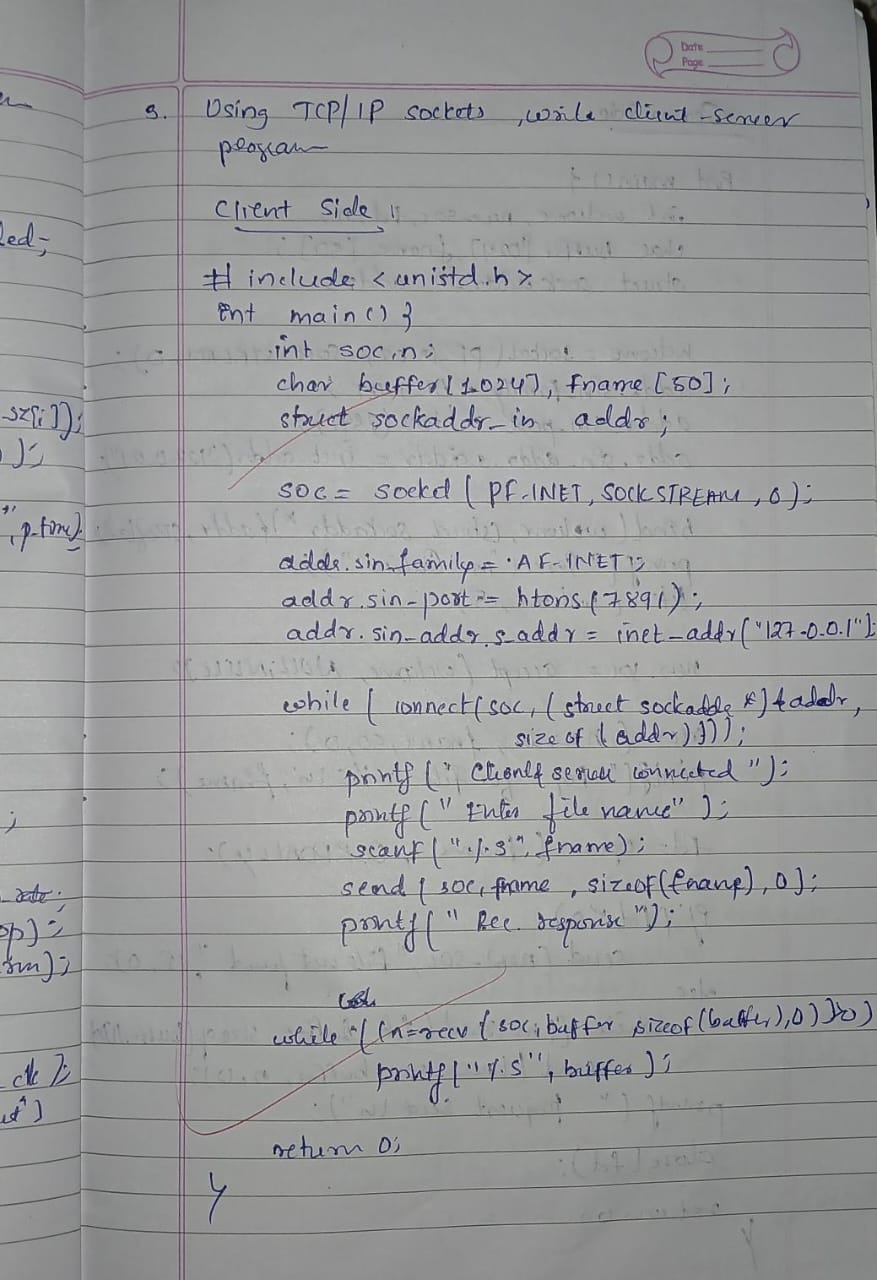 Date
Page
9. Using TCP/IP sockets, write client-server
program
Client Side
# include <unistd.h>
int main() {
int soc, n;
char buffer[1024], fname [50];
struct sockaddr_in addr;
soc = socket ( PF-INET, SOCK STREAM, 0);
addr.sin_family = AF-INET;
addr.sin-port = htons (7891);
addr.sin-addr.s_addr = inet_addr("127.0.0.1");
while ( connect(soc, (struct sockaddr *) & addr,
size of (addr)));
printf (" Client & server connected ");
printf (" Enter file name" );
scanf ("%s", fname);
send ( soc, fname , sizeof(fname), 0);
printf (" Rec. response ");
while ((n=recv (soc, buffer sizeof(buffer),0))>0)
printf ("%s", buffer);
return 0;
}
led;
sz[i]);
);
", p-tom)
;
op);
sum);